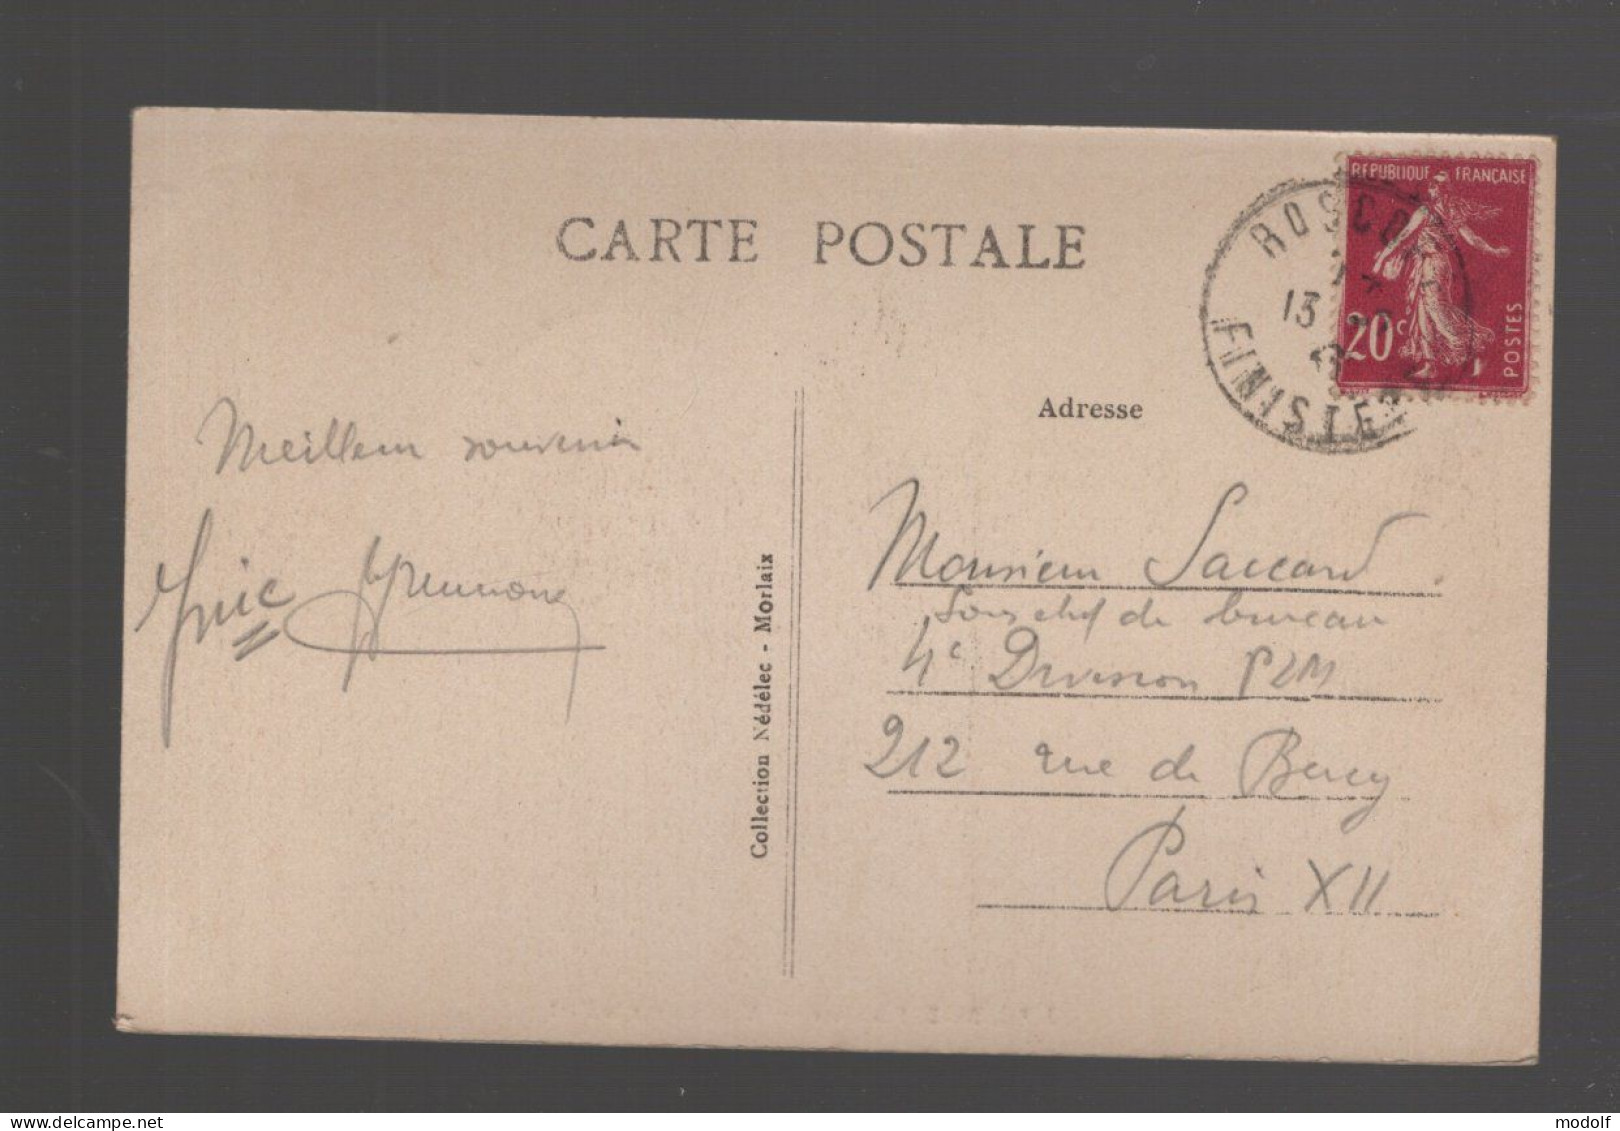 CARTE POSTALE
REPUBLIQUE FRANÇAISE
20c
POSTES
ROSCOFF
13
FINISTE
Adresse
Meilleur souvenir
Collection Nédélec - Morlaix
Monsieur Saccard
Sous chef de bureau
4e Division PLM
212 rue de Bercy
Paris XII
modolf